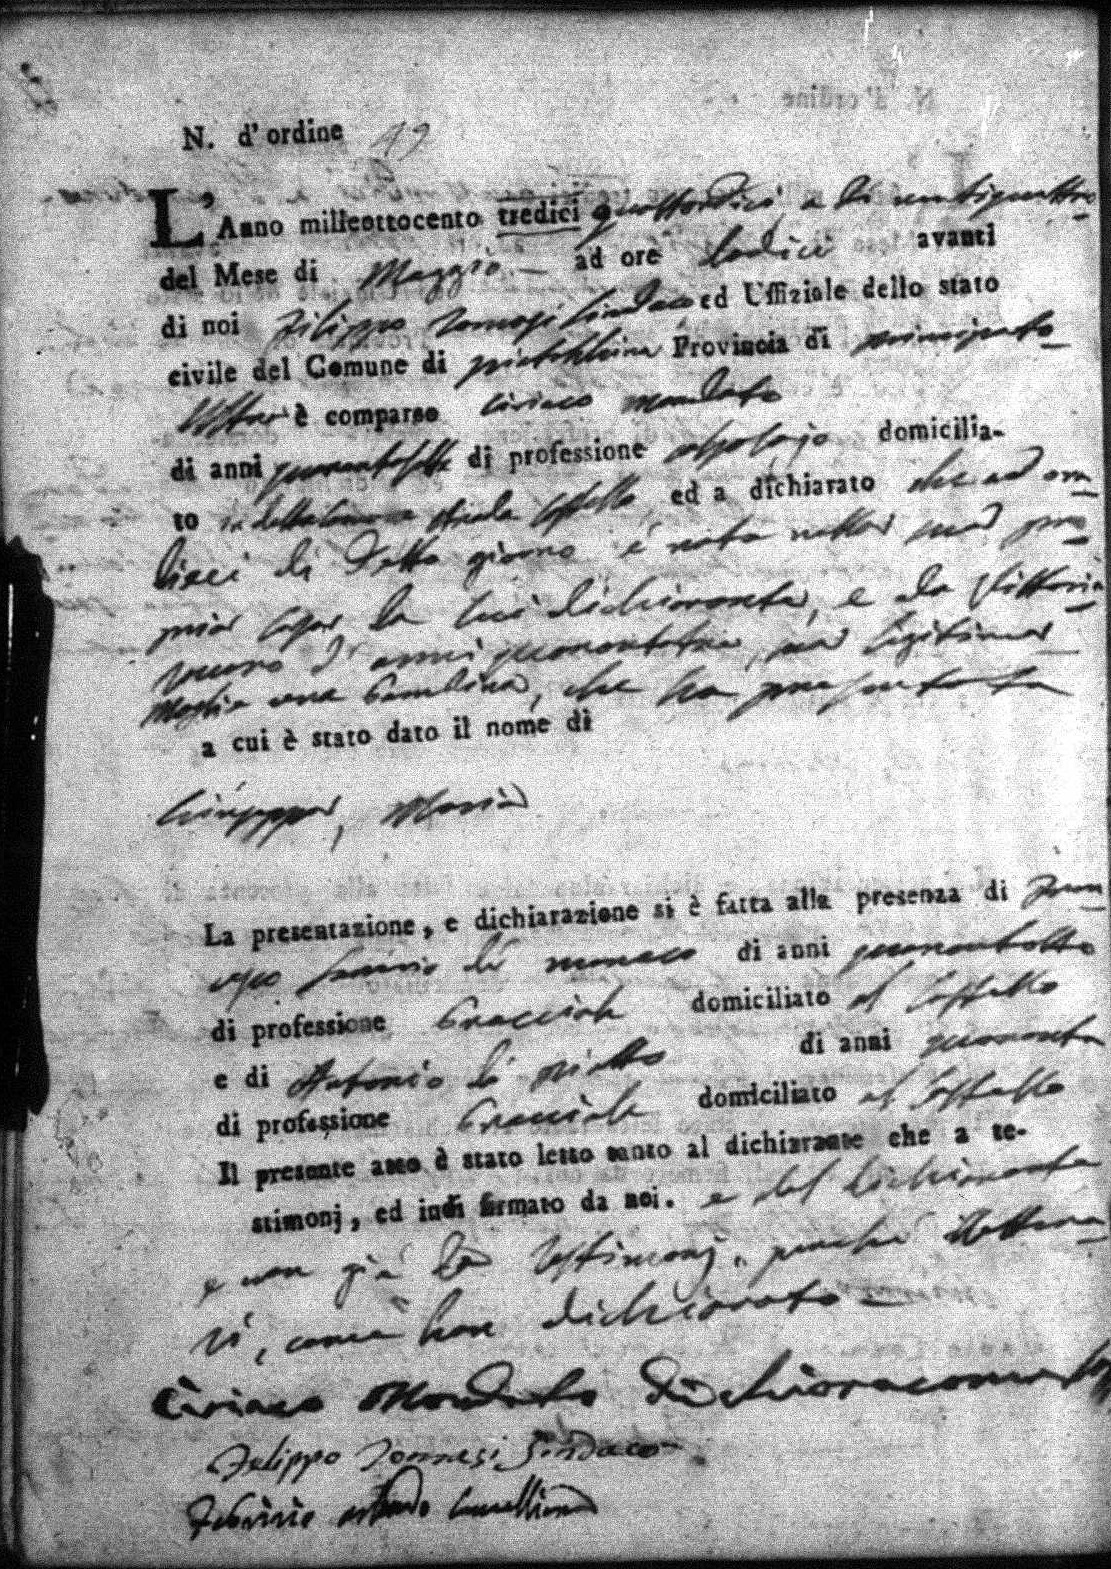 N. d'ordine 49
L'Anno milleottocento tredici quattordici a dì ventiquattro
del Mese di Maggio ad ore dodici avanti
di noi Filippo Tomasi Sindaco ed Uffiziale dello stato
civile del Comune di Provincia di principato
Ultra è comparso Ciriaco Mondato
di anni quarantasette di professione domicilia-
to in detta Comune strada Castello ed a dichiarato che ad ore
dieci di detto giorno è nata nella sua pro
pria Casa da lui dichiarante, e da Vittoria
d'anni sua legittima
Moglie una bambina, che ha presentata
a cui è stato dato il nome di
Giuseppa, Maria
La presentazione, e dichiarazione si è fatta alla presenza di Fran
di monaco di anni quarantotto
di professione Bracciale domiciliato al Castello
e di Antonio di anni quaranta
di professione Bracciale domiciliato al Castello
Il presente atto è stato letto tanto al dichiarante che a te-
stimonj, ed indi firmato da noi. e dal dichiarante
e non già da Testimonj, perché illettera
ti, come han dichiarato
Ciriaco Mondato dichiaro come sopra
Felippo Sindaco
Fabrizio Cancelliere